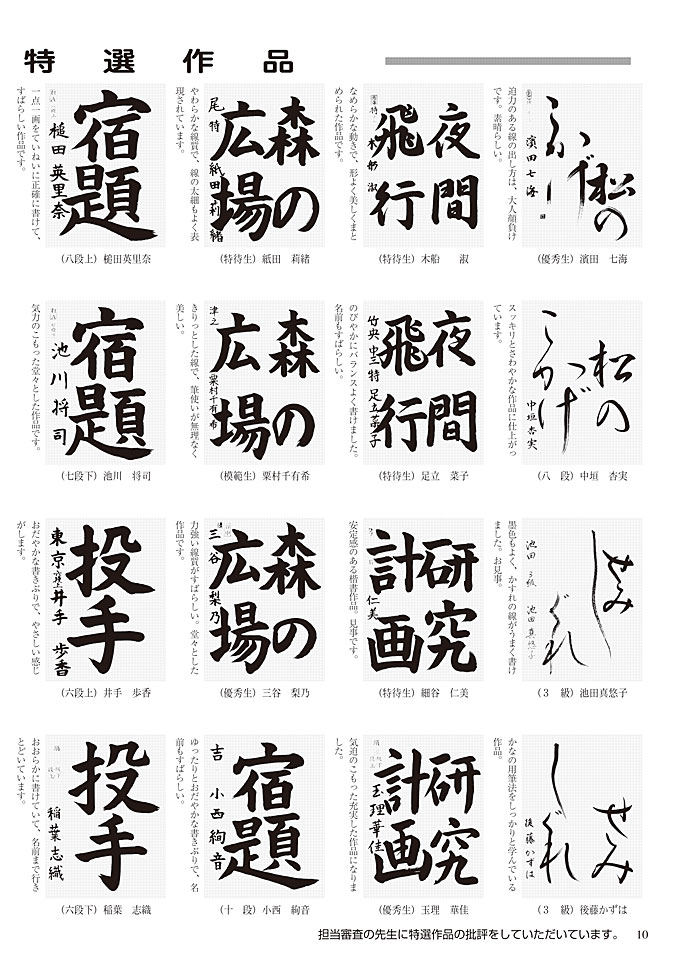 特選作品
迫力のある線の出し方は、大人顔負け
です。素晴らしい。
松の
こかげ
濱田七海
(優秀生) 濱田　七海
なめらかな動きで、形よく美しくまと
められた作品です。
夜間
飛行
特 木船 淑
(特待生) 木船　　淑
やわらかな線質で、線の太細もよく表
現されています。
森の
広場
尾 特 紙田莉緒
(特待生) 紙田　莉緒
一点一画をていねいに正確に書けて、
すばらしい作品です。
宿題
槌田英里奈
(八段上) 槌田英里奈
スッキリとさわやかな作品に仕上がっ
ています。
松の
こかげ
中垣杏実
(八　段) 中垣　杏実
のびやかにバランスよく書けました。
名前もすばらしい。
夜間
飛行
竹央 中三 特 足立菜子
(特待生) 足立　菜子
きりっとした線で、筆使いが無理なく
美しい。
森の
広場
津之 粟村千有希
(模範生) 粟村千有希
気力のこもった堂々とした作品です。
宿題
池川将司
(七段下) 池川　将司
墨色もよく、かすれの線がうまく書け
ました。お見事。
せみ
しぐれ
池田 3級 池田真悠子
(3　級) 池田真悠子
安定感のある楷書作品。見事です。
研究
計画
仁美
(特待生) 細谷　仁美
力強い線質がすばらしい。堂々とした
作品です。
森の
広場
三谷梨乃
(優秀生) 三谷　梨乃
おだやかな書きぶりで、やさしい感じ
がします。
投手
東京 井手歩香
(六段上) 井手　歩香
かなの用筆法をしっかりと学んでいる
作品。
せみ
しぐれ
後藤かずは
(3　級) 後藤かずは
気迫のこもった充実した作品になりま
した。
研究
計画
玉理華佳
(優秀生) 玉理　華佳
ゆったりとおだやかな書きぶりで、名
前もすばらしい。
宿題
吉 小西絢音
(十　段) 小西　絢音
おおらかに書けていて、名前まで行き
とどいています。
投手
稲葉志織
(六段下) 稲葉　志織
担当審査の先生に特選作品の批評をしていただいています。 10